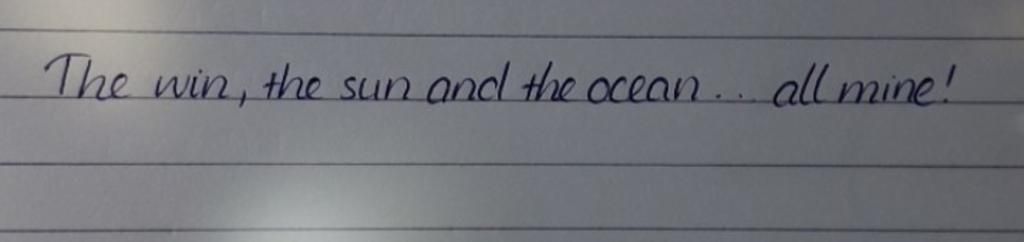 The win, the sun and the ocean... all mine!